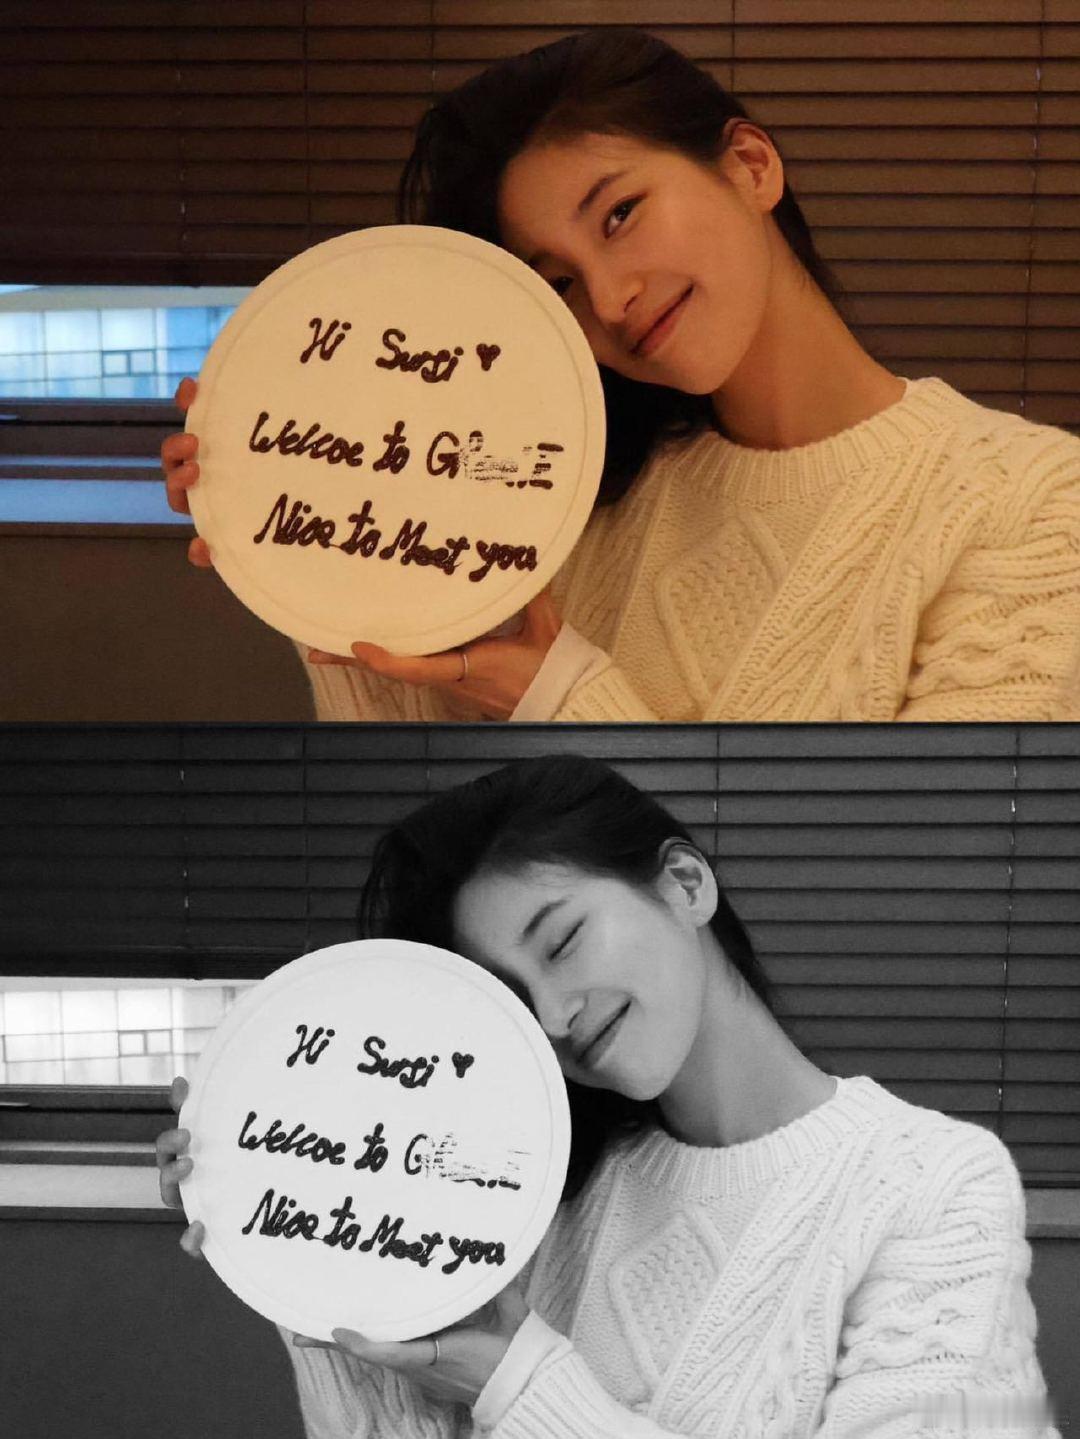 Hi Suzi ♥
Welcoe to
Nice to Meet you
Hi Suzi ♥
Welcoe to
Nice to Meet you